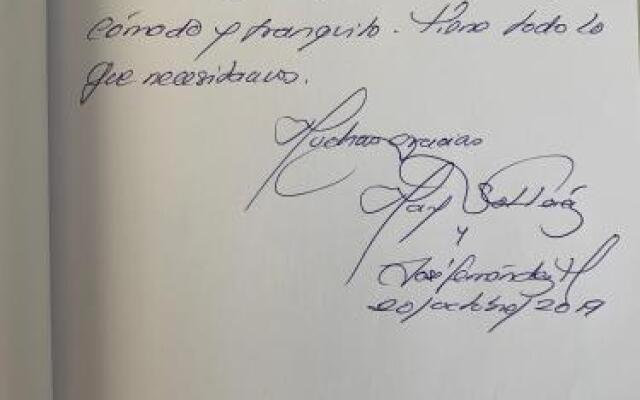 cómodo y tranquilo. Tiene todo lo
que necesitamos.
Muchas gracias
y
José Fernández M
20/octubre/2019